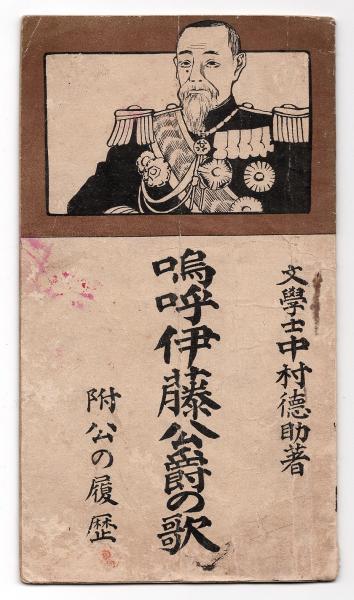 文學士中村德助著
嗚呼伊藤公爵の歌
附公の履歴